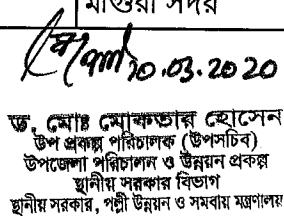 মাগুরা সদর
20.03.2020
ড. মোঃ মোকতার হোসেন
উপ প্রকল্প পরিচালক (উপসচিব)
উপজেলা পরিচালন ও উন্নয়ন প্রকল্প
স্থানীয় সরকার বিভাগ
স্থানীয় সরকার, পল্লী উন্নয়ন ও সমবায় মন্ত্রণালয়